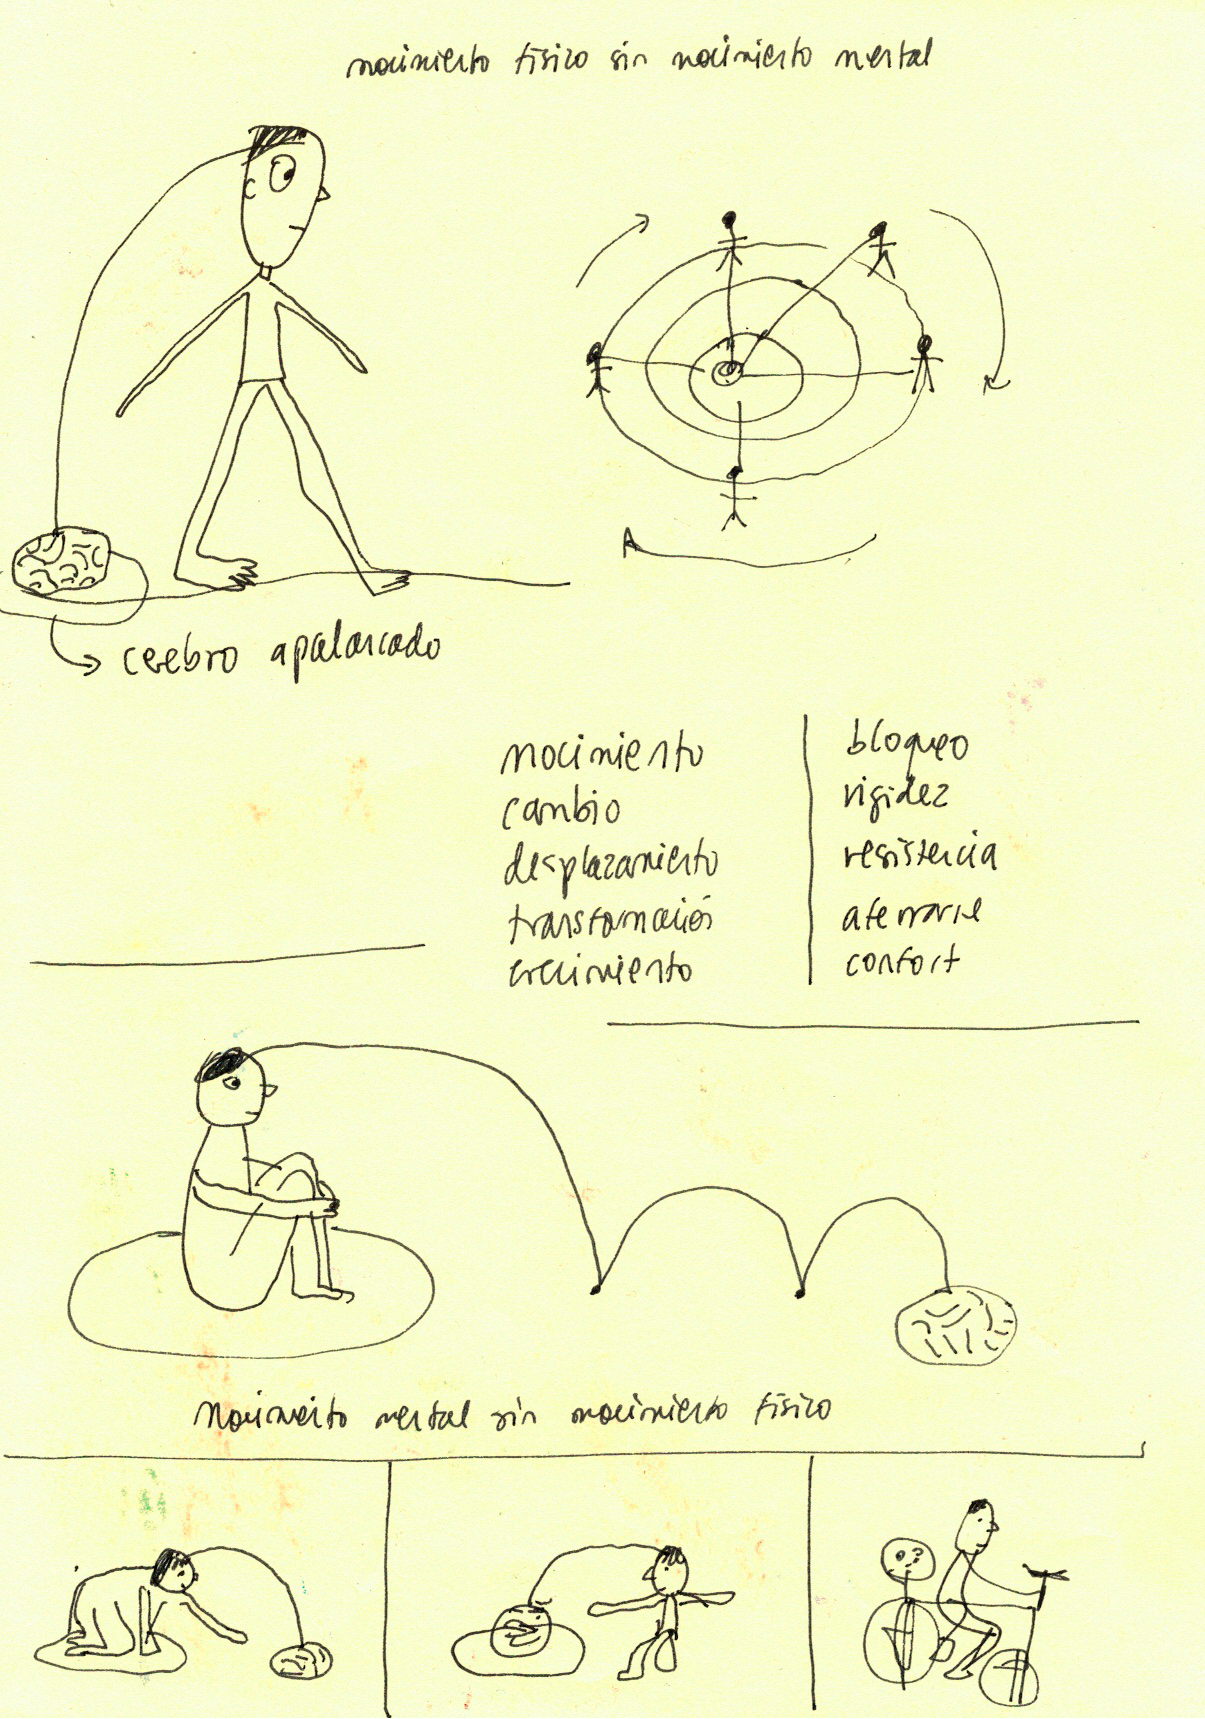 movimiento físico sin movimiento mental
cerebro apalancado
movimiento
cambio
desplazamiento
transformación
crecimiento
bloqueo
rigidez
resistencia
aferrarse
confort
movimiento mental sin movimiento físico